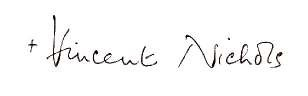 + Vincent Nichols